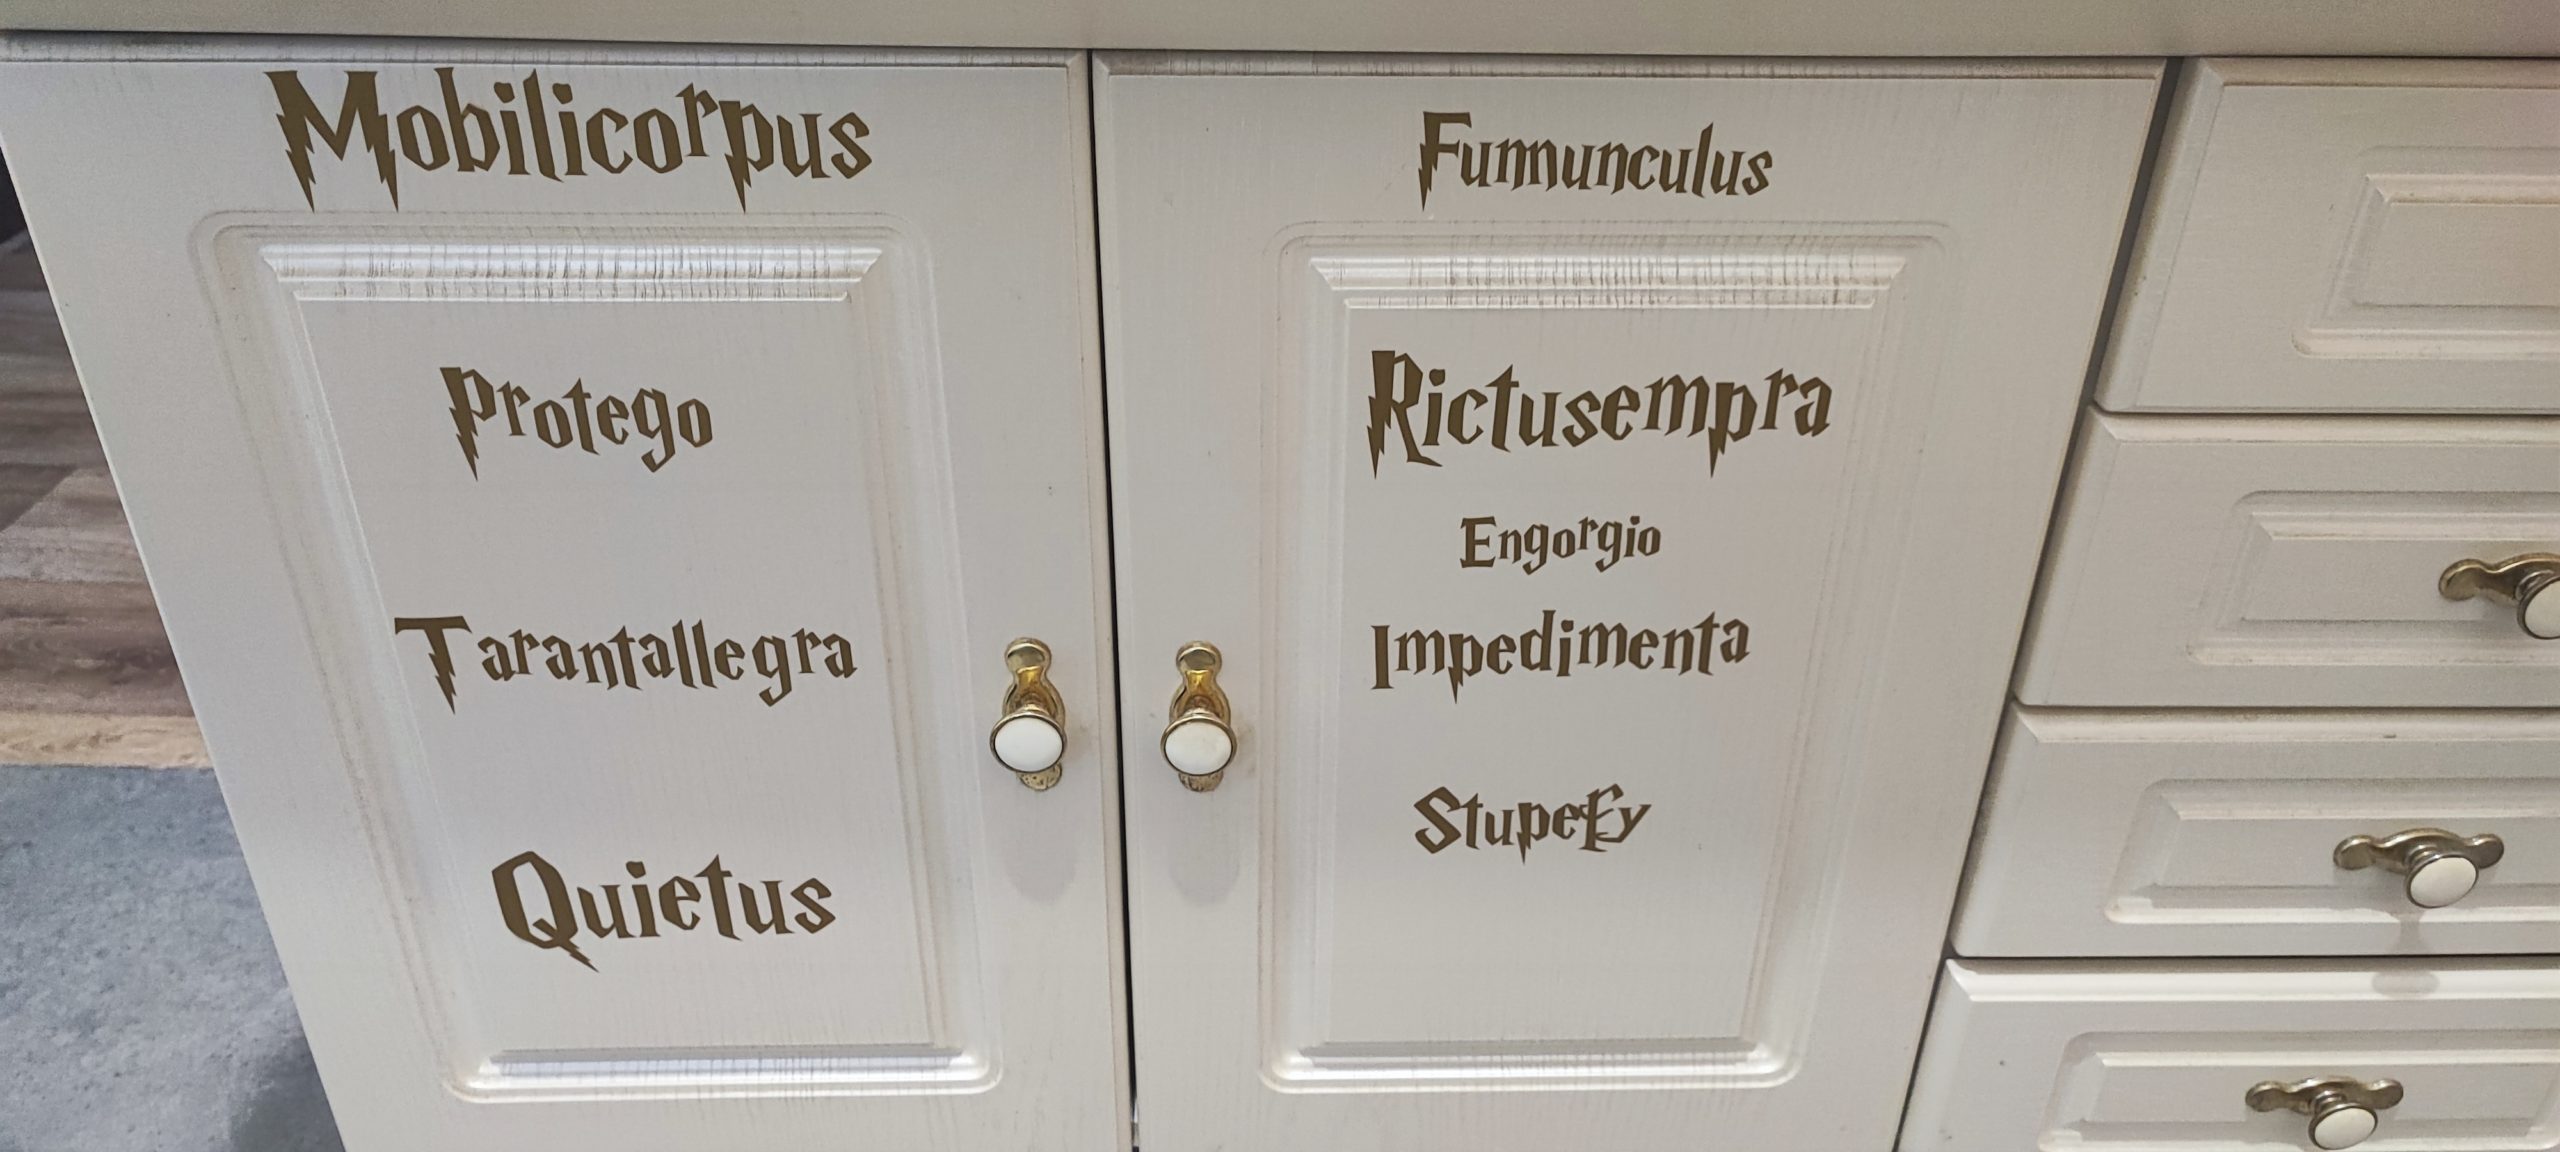 Mobilicorpus
Protego
Tarantallegra
Quietus
Funnunculus
Rictusempra
Engorgio
Impedimenta
Stupefy